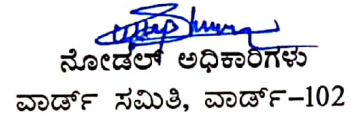 ನೋಡಲ್ ಅಧಿಕಾರಿಗಳು
ವಾರ್ಡ್ ಸಮಿತಿ, ವಾರ್ಡ್-102